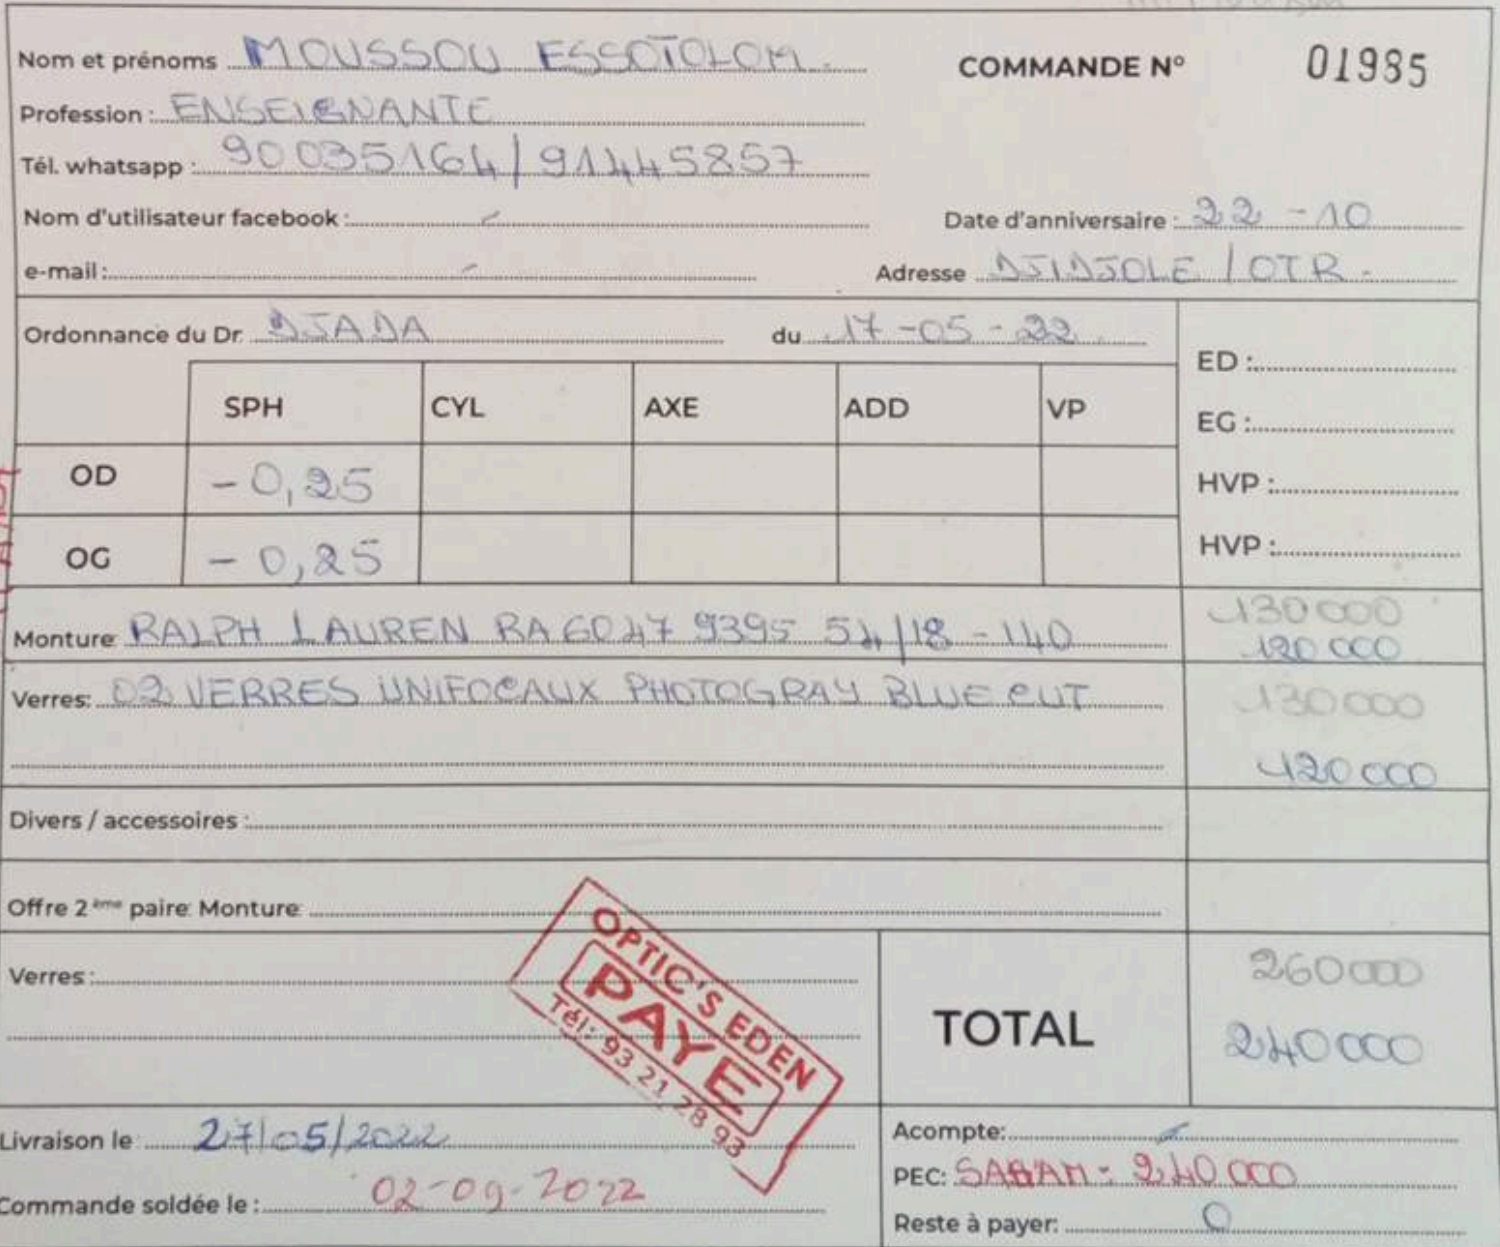 Nom et prénoms MOUSSOU ESSOTOLOM.
COMMANDE N° 01985
Profession : ENSEIGNANTE
Tél. whatsapp : 90035164/91445857
Nom d'utilisateur facebook : -
Date d'anniversaire : 22 - 10
e-mail : -
Adresse DJIDJOLE / OTR.
Ordonnance du Dr. DJADA du 17-05-22
ED :
SPH CYL AXE ADD VP
EG :
OD -0,25
HVP :
OG -0,25
HVP :
Monture RALPH LAUREN RA 6047 9395 54/18 - 140
130000
120 000
Verres: 02 VERRES UNIFOCAUX PHOTOGRAY BLUE CUT
130000
120 000
Divers / accessoires :
Offre 2ème paire: Monture
Verres :
OPTIC'S EDEN
PAYE
Tél: 93 21 28 93
TOTAL
260000
240000
Livraison le 27/05/2022
Acompte:
PEC: SABAM : 240 000
Commande soldée le : 02-09-2022
Reste à payer: 0